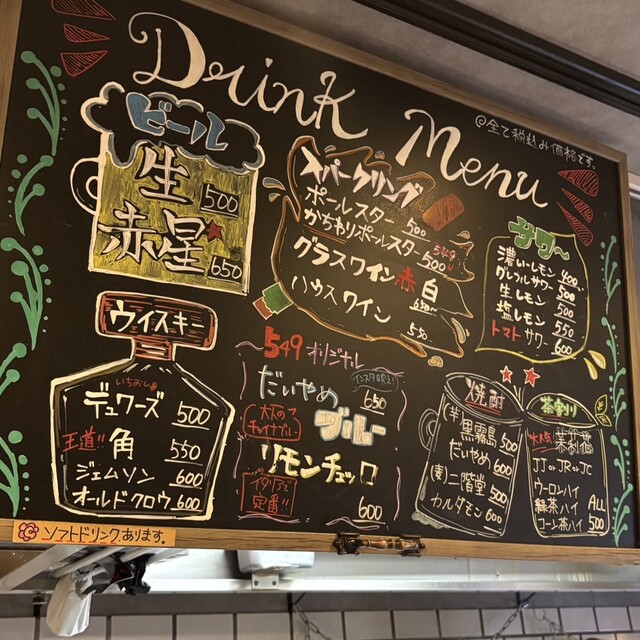 Drink Menu
@全て税込み価格です。
ビール
生 500
赤星★ 650
スパークリング
ポールスター 500
かちわりポールスター 500
549
グラスワイン 赤 白
ハウスワイン 550
サワ〜
濃いレモン 400
グレフルサワー 500
生レモン 500
塩レモン 550
トマトサワー 600
ウイスキー
いちおし
デュワーズ 500
王道!! 角 550
ジェムソン 600
オールドクロウ 600
549 オリジナル
だいやめ 650
大人のチャイナブルー
ブルー
リモンチェッロ
イタリアで定番!! 600
焼酎
(芋) 黒霧島 500
だいやめ 600
(麦) 二階堂 500
カルダモン 600
茶割り
大人気 茉莉花
JJ or JR or JC
ウーロンハイ
緑茶ハイ ALL
コーン茶ハイ 500
ソフトドリンクあります。